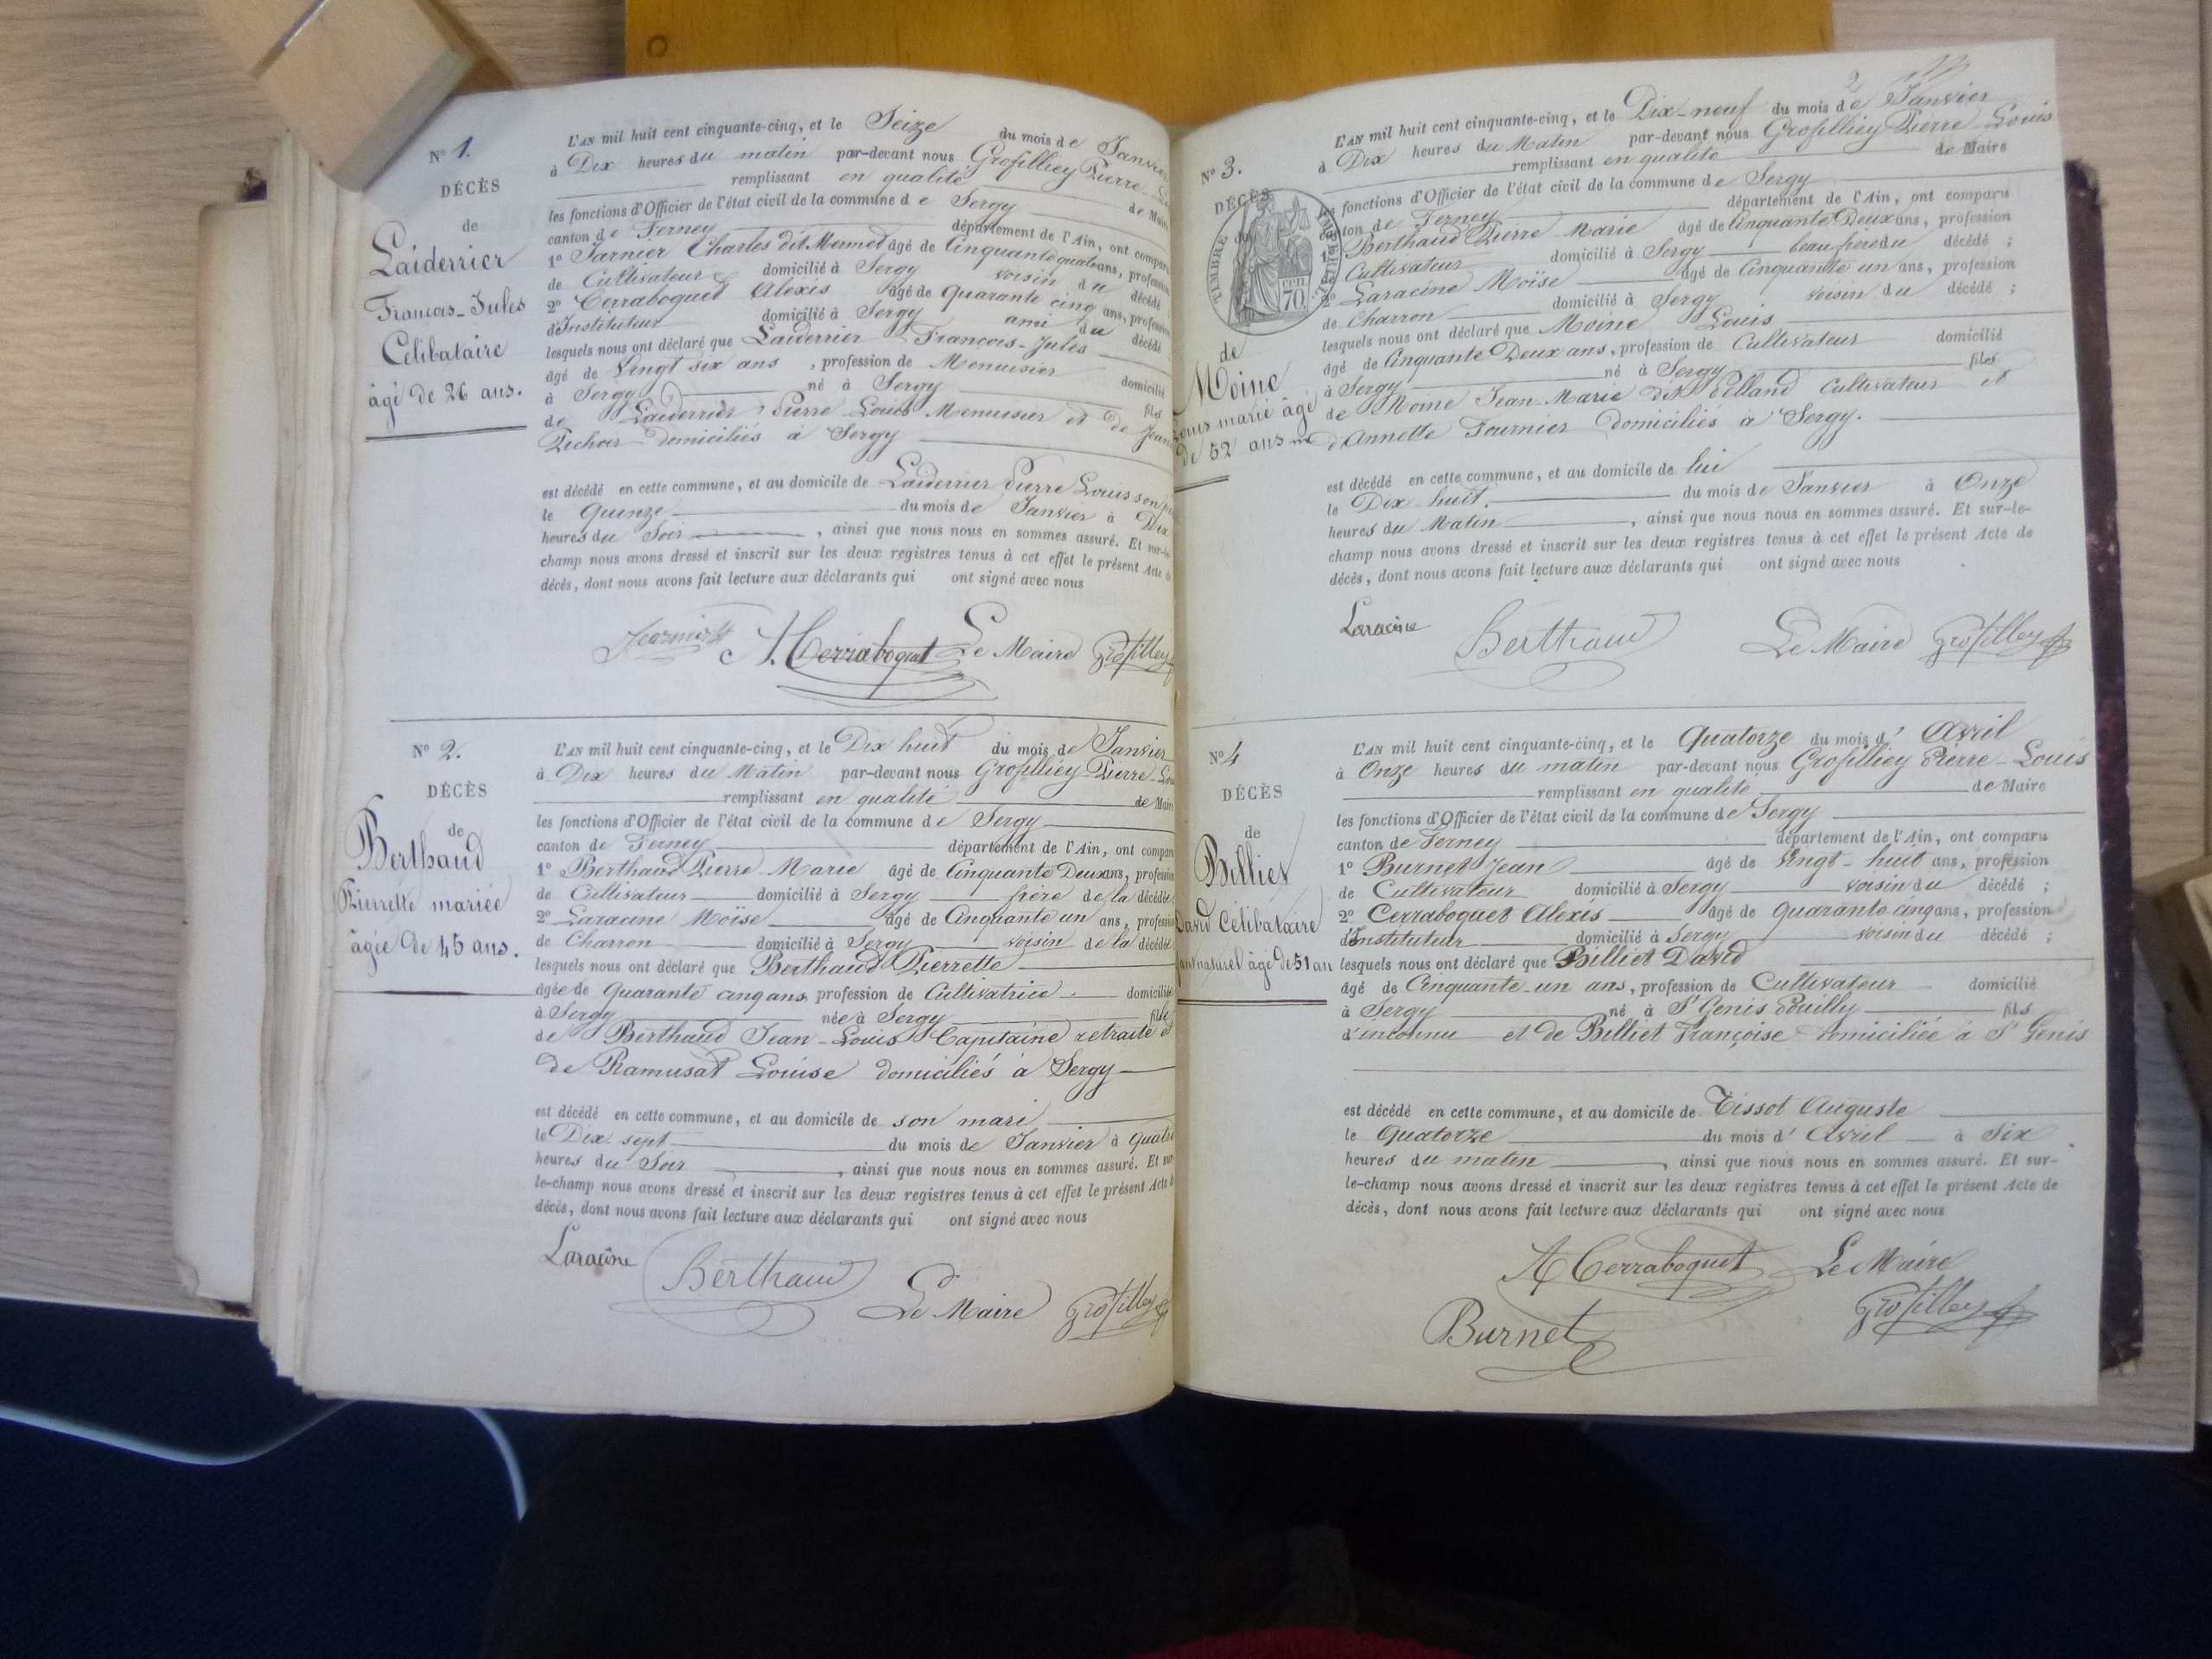 N° 1.
DÉCÈS
de
Laiderrier
François-Jules
Célibataire
âgé de 26 ans.
L'AN mil huit cent cinquante-cinq, et le Seize du mois de Janvier
à Dix heures du matin par-devant nous Grosfilley Pierre
remplissant en qualité de Maire
les fonctions d'Officier de l'état civil de la commune de Sergy
canton de Ferney département de l'Ain, ont comparu
1° Jarnier Charles dit Mermet âgé de Cinquante quatre ans, profession
de Cultivateur domicilié à Sergy voisin du décédé
2° Cerraboquet Alexis âgé de Quarante cinq ans, profession
d'Instituteur domicilié à Sergy ami du décédé
lesquels nous ont déclaré que Laiderrier François-Jules
âgé de Vingt six ans, profession de Menuisier domicilié
à Sergy né à Sergy fils
de Laiderrier Pierre Louis Menuisier et de Jeanne
domiciliés à Sergy
est décédé en cette commune, et au domicile de Laiderrier Pierre Louis son
le Quinze du mois de Janvier à Dix
heures du Soir, ainsi que nous nous en sommes assuré. Et sur-le-
champ nous avons dressé et inscrit sur les deux registres tenus à cet effet le présent Acte de
décès, dont nous avons fait lecture aux déclarants qui ont signé avec nous
A. Cerraboquet Le Maire Grosfilley
N° 2.
DÉCÈS
de
Berthaud
Pierrette mariée
âgée de 45 ans.
L'AN mil huit cent cinquante-cinq, et le Dix huit du mois de Janvier
à Dix heures du Matin par-devant nous Grosfilley Pierre-Lou
remplissant en qualité de Maire
les fonctions d'Officier de l'état civil de la commune de Sergy
canton de Ferney département de l'Ain, ont comparu
1° Berthaud Pierre Marie âgé de Cinquante Deux ans, profession
de Cultivateur domicilié à Sergy frère de la décédée
2° Laracine Moïse âgé de Cinquante un ans, profession
de Charron domicilié à Sergy voisin de la décédée
lesquels nous ont déclaré que Berthaud Pierrette
âgée de Quarante cinq ans profession de Cultivatrice domiciliée
à Sergy née à Sergy fille
de Berthaud Jean-Louis Capitaine retraité et
de Ramusat Louise domiciliés à Sergy
est décédé en cette commune, et au domicile de son mari
le Dix sept du mois de Janvier à quatre
heures du Soir, ainsi que nous nous en sommes assuré. Et sur-
le-champ nous avons dressé et inscrit sur les deux registres tenus à cet effet le présent Acte de
décès, dont nous avons fait lecture aux déclarants qui ont signé avec nous
Laracine Berthaud Le Maire Grosfilley
2
N° 3.
DÉCÈS
TIMBRE IMPÉRIAL
70.
de
Moine
Louis marié âgé
de 52 ans
L'AN mil huit cent cinquante-cinq, et le Dix-neuf du mois de Janvier
à Dix heures du Matin par-devant nous Grosfilley Pierre-Louis
remplissant en qualité de Maire
les fonctions d'Officier de l'état civil de la commune de Sergy
canton de Ferney département de l'Ain, ont comparu
1° Berthaud Pierre Marie âgé de Cinquante Deux ans, profession
de Cultivateur domicilié à Sergy beau frère du décédé ;
2° Laracine Moïse âgé de Cinquante un ans, profession
de Charron domicilié à Sergy voisin du décédé ;
lesquels nous ont déclaré que Moine Louis
âgé de Cinquante Deux ans, profession de Cultivateur domicilié
à Sergy né à Sergy fils
de Moine Jean-Marie dit Pelland Cultivateur et
d'Annette Fournier domiciliés à Sergy.
est décédé en cette commune, et au domicile de lui
le Dix-huit. du mois de Janvier à Onze
heures du Matin, ainsi que nous nous en sommes assuré. Et sur-le-
champ nous avons dressé et inscrit sur les deux registres tenus à cet effet le présent Acte de
décès, dont nous avons fait lecture aux déclarants qui ont signé avec nous
Laracine Berthaud Le Maire Grosfilley
N° 4
DÉCÈS
de
Billiet
David Célibataire
naturel âgé de 51 an
L'AN mil huit cent cinquante-cinq, et le Quatorze du mois d'Avril
à Onze heures du matin par-devant nous Grosfilley Pierre-Louis
remplissant en qualité de Maire
les fonctions d'Officier de l'état civil de la commune de Sergy
canton de Ferney département de l'Ain, ont comparu
1° Burnet Jean âgé de Vingt-huit ans, profession
de Cultivateur domicilié à Sergy voisin du décédé ;
2° Cerraboquet Alexis âgé de quarante cinq ans, profession
d'Instituteur domicilié à Sergy voisin du décédé ;
lesquels nous ont déclaré que Billiet David
âgé de Cinquante-un ans, profession de Cultivateur domicilié
à Sergy né à St Genis Pouilly fils
d'inconnu et de Billiet Françoise domiciliée à St Genis
est décédé en cette commune, et au domicile de Tissot Auguste
le Quatorze du mois d'Avril à Six
heures du matin, ainsi que nous nous en sommes assuré. Et sur-
le-champ nous avons dressé et inscrit sur les deux registres tenus à cet effet le présent Acte de
décès, dont nous avons fait lecture aux déclarants qui ont signé avec nous
A Cerraboquet Le Maire
Burnet Grosfilley